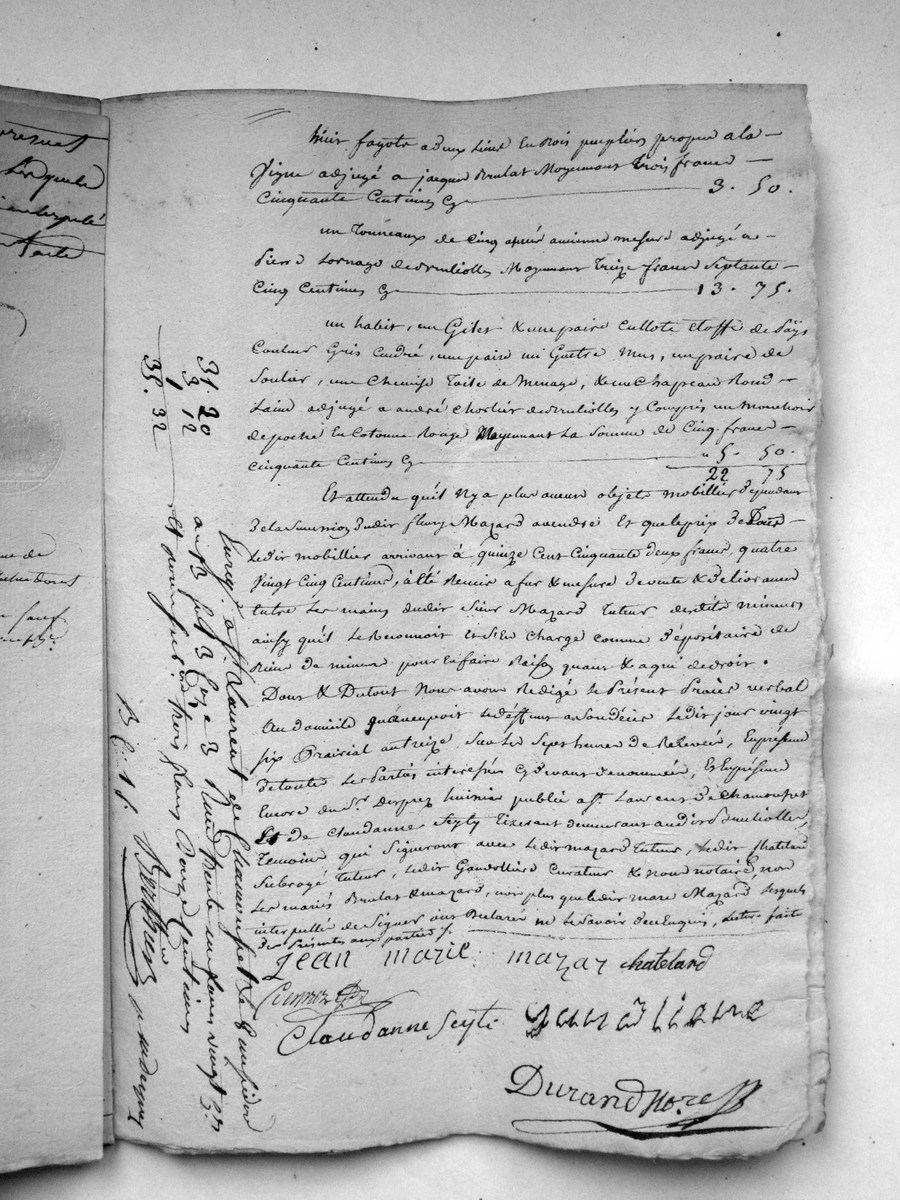 huit fagots a deux liens en bois peupliers propre a la
Vigne adjugé a jacques Brulat Moyennant Trois francs
Cinquante Centimes Cy 3. 50.
un Tonneaux de Cinq anné ancienne mesure adjugé a
Pierre Lornage de Brulliolles Moyennant Treize francs Septante
Cinq Centimes Cy 13. 75.
un habit, un Gilet & une paire Cullote étoffe de Païs
Couleur Gris Cendré, une paire mi Guêtre, un paire de
Soulier, une Chemise Toile de Menage, & un Chapeau Rond
Laine adjugé a andré Chorlier de Brulliolles y Compris un Mouchoir
de poche En Cotonne Rouge Moyennant La Somme de Cinq francs
Cinquante Centimes Cy 5. 50.
22 75
Et attendu qu'il N'y a plus aucuns objets mobillier dépendant
de la Succession dudit fleury Mazard a vendre Et que le prix de Tous
Ledit mobillier arrivant à quinze Cent Cinquante deux francs, quatre
Vingt Cinq Centimes, à été Remis a fur & mesure de vente & délivrance
Entre Les mains dudit Sieur Mazard Tuteur desdits mineurs
ainsy qu'il Le Reconnoit Et S'En Charge Comme dépositaire de
de mineurs pour En faire Raison quant & a qui de droit.
Dont & Du tout Nous avons Redigé Le Présent Procès verbal
Au domicile qu'avoit Le déffunt Ledit jour vingt
six Prairial an treize Sur Les Sept heures de Relevée, En présence
de toutes Les Parties interessées Cy devant denommées, Et En présence
Encore du Sr. Desprez huissier publie a St. Laurent de Chamousset
Et de Claudanne Seyty Tixerant demeurant audit Brulliolles,
Temoins qui Signeront avec Ledit mazard Tuteur, Ledit Chatelard
Subrogé Tuteur, Ledit Gaudilliere Curateur & Nous notaire, non
Les mariés Brulat & mazard, non plus que Ledit marc Mazard, Lesquels
interpellés de Signer ont Declarer ne Le Savoir De ce Enquis, Lecture faite
des présentes aux parties.
Jean marie mazar chatelard
Claudanne Seyti gaudiliere
Durand Nore
31. 20
3 12
1
35. 32
Enreg. a St. Laurent de Chamousset le
an 13 fol 3 Case 3 Recu trente un francs vingt Cen
et pour subvon trois francs Douze Centimes